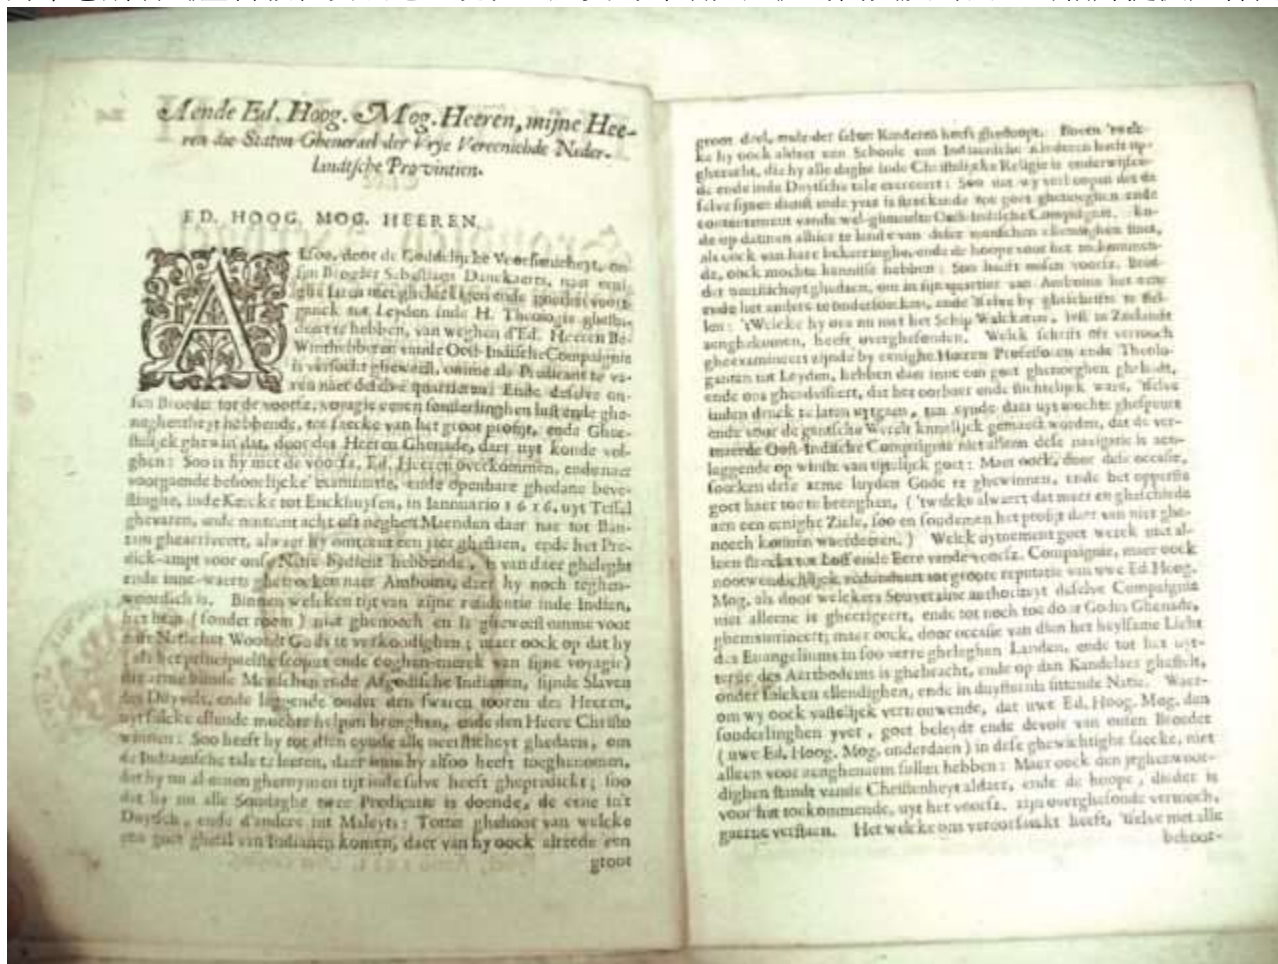 Aende Ed. Hoog. Mog. Heeren, mijne Hee-
ren die Staten Ghenerael der Vrye Vereenichde Neder-
landtsche Provintien.
ED. HOOG. MOG. HEEREN,
Alsoo, door de Goddelijcke Voorsienicheyt, on-
sen Broeder Sebastiaen Danckaerts, naer eeni-
ghe Jaren met gheluckigen ende goeden voort-
ganck tot Leyden inde H. Theologie ghestu-
deert te hebben, van weghen d'Ed. Heeren Be-
Winthebberen vande Oost-Indische Compaignie
is versocht gheweest, omme als Predicant te va-
ren naer de selve quartieren: Ende deselve on-
sen Broeder tot de voorsz. voyagie eenen sonderlinghen lust ende ghe-
neghentheyt hebbende, tot saecke van het groot profijt, ende Ghee-
stelijck ghewin dat, door des Heeren Ghenade, daer uyt konde vol-
ghen: Soo is hy met de voorsz. Ed. Heeren overkommen, ende naer
voorgaende behoorlijcke examinatie, ende openbare ghedane beve-
stinghe, inde Kercke tot Enckhuysen, in Iannuario 1616. uyt Tessel
ghevaren, ende omtrent acht oft neghen Maenden daer nae tot Ban-
tam ghearriveert, alwaer hy omtrent een jaer ghestaen, ende het Pre-
dick-ampt voor onse Natie bedient hebbende, is van daer gheleght
ende inne-waerts ghetrocken naer Amboina, daer hy noch teghen-
woordich is. Binnen welcken tijt van zijne residentie inde Indien,
het hem (sonder roem) niet ghenoech en is gheweest omme voor
onse Natie het Woordt Gods te verkondighen; maer oock op dat hy
(als het principaelste scopus ende ooghen-merck van sijne voyagie)
die arme blinde Menschen ende Afgodische Indianen, sijnde Slaven
des Duyvels, ende liggende onder den swaren tooren des Heeren,
uyt sulcke ellende mochte helpen brenghen, ende den Heere Christo
winnen: Soo heeft hy tot dien eynde alle neersticheyt ghedaen, om
de Indiaensche tale te leeren, daer inne hy alsoo heeft toeghenomen,
dat hy nu al eenen gheruymen tijt inde selve heeft ghepredickt; soo
dat hy nu alle Sondaghe twee Predicatie is doende, de eene in't
Duytsch, ende d'andere int Maleyts: Totter ghehoor van welcke
een goet ghetal van Indianen komen, daer van hy oock alreede een
groot
groot deel, mitsder selver Kinderen heeft ghedoopt. Boven 'twelc-
ke hy oock aldaer een Schoole van Indiaensche kinderen heeft op-
gherecht, die hy alle daghe inde Christelijcke Religie is onderwijsen-
de ende inde Duytsche tale exerceert: Soo dat wy verhoopen dat de
selve sijnen dienst ende yver is streckende tot goet ghenoeghen ende
contentement vande wel-ghemelte Oost-Indische Compaignie. En-
de op datmen alhier te lande van deser menschen ellendighen staet,
als oock van hare bekeeringhe, ende de hoope voor het toekommen-
de, oock mochte kennisse hebben: Soo heeft onsen voorsz. Broe-
der neersticheyt ghedaen, om in sijn quartier van Amboina het eene
ende het andere te ondersoecken, ende 'tselve by gheschrifte te stel-
len: 'tWelcke hy ons nu met het Schip Walcheren, lest in Zeelandt
aenghekomen, heeft overghesonden. Welck schrift oft vertooch
gheexamineert zijnde by eenighe Heeren Professoren ende Theolo-
ganten tot Leyden, hebben daer inne een goet ghenoeghen ghehadt,
ende ons gheadviseert, dat het oorboer ende stichtelijck ware, 'tselve
inden druck te laten uytgaen, ten eynde daer uyt mochte ghespeurt
ende voor de gantsche Werelt kennelijck gemaeckt worden, dat de ver-
maerde Oost-Indische Compaignie niet alleen dese navigatie is aen-
leggende op winste van tijtelijck goet: Maer oock, door dese occasie,
soecken dese arme luyden Gode te ghewinnen, ende het opperste
goet haer toe te brenghen, ('twelcke alwaert dat maer en gheschiede
aen een eenighe Ziele, soo en soudemen het profijt daer van niet ghe-
noech konnen waerderen.) Welck uytnement goet werck niet al-
leen streckt tot Loff ende Eere vande voorsz. Compaignie, maer oock
nootwendichlijck redundeert tot groote reputatie van uwe Ed. Hoog.
Mog. als door welckers Souveraine authoriteyt deselve Compaignie
niet alleene is gheerigeert, ende tot noch toe door Godes Ghenade,
ghemainteneert; maer oock, door occasie van dien het heylsame Licht
des Euangeliums in soo verre gheleghen Landen, ende tot het uyt-
terste des Aertbodems is ghebracht, ende op dan Kandelaer ghestelt,
onder sulcken ellendighen, ende in duysternis sittende Natie. Waer-
om wy oock vastelijck vertrouwende, dat uwe Ed. Hoog. Mog. dan
sonderlinghen yver, goet beleydt ende devoir van onsen Broeder
(uwe Ed. Hoog. Mog. onderdaen) in dese ghewichtighe saecke, niet
alleen voor aenghenaem sullen hebben: Maer oock den jeghenwoor-
dighen standt vande Christenheyt aldaer, ende de hoope, dieder is
voor het toekommende, uyt het voorsz. zijn overghesonde vertooch,
gaerne verstaen. Het welcke ons veroorsaeckt heeft, 'tselve met alle
behoor-